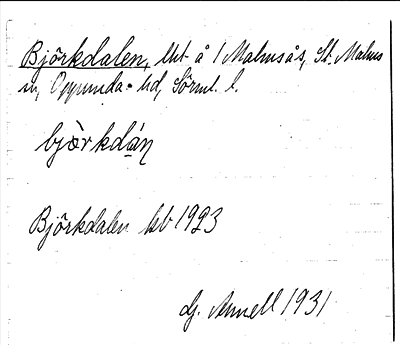 Björkdalen, lht å 1 Malmsås, St. Malms
sn, Oppunda hd, Sörml. l.
bjò̀rkdá̱ṇ
Björkdalen hb 1923
Hj. Annell 1931